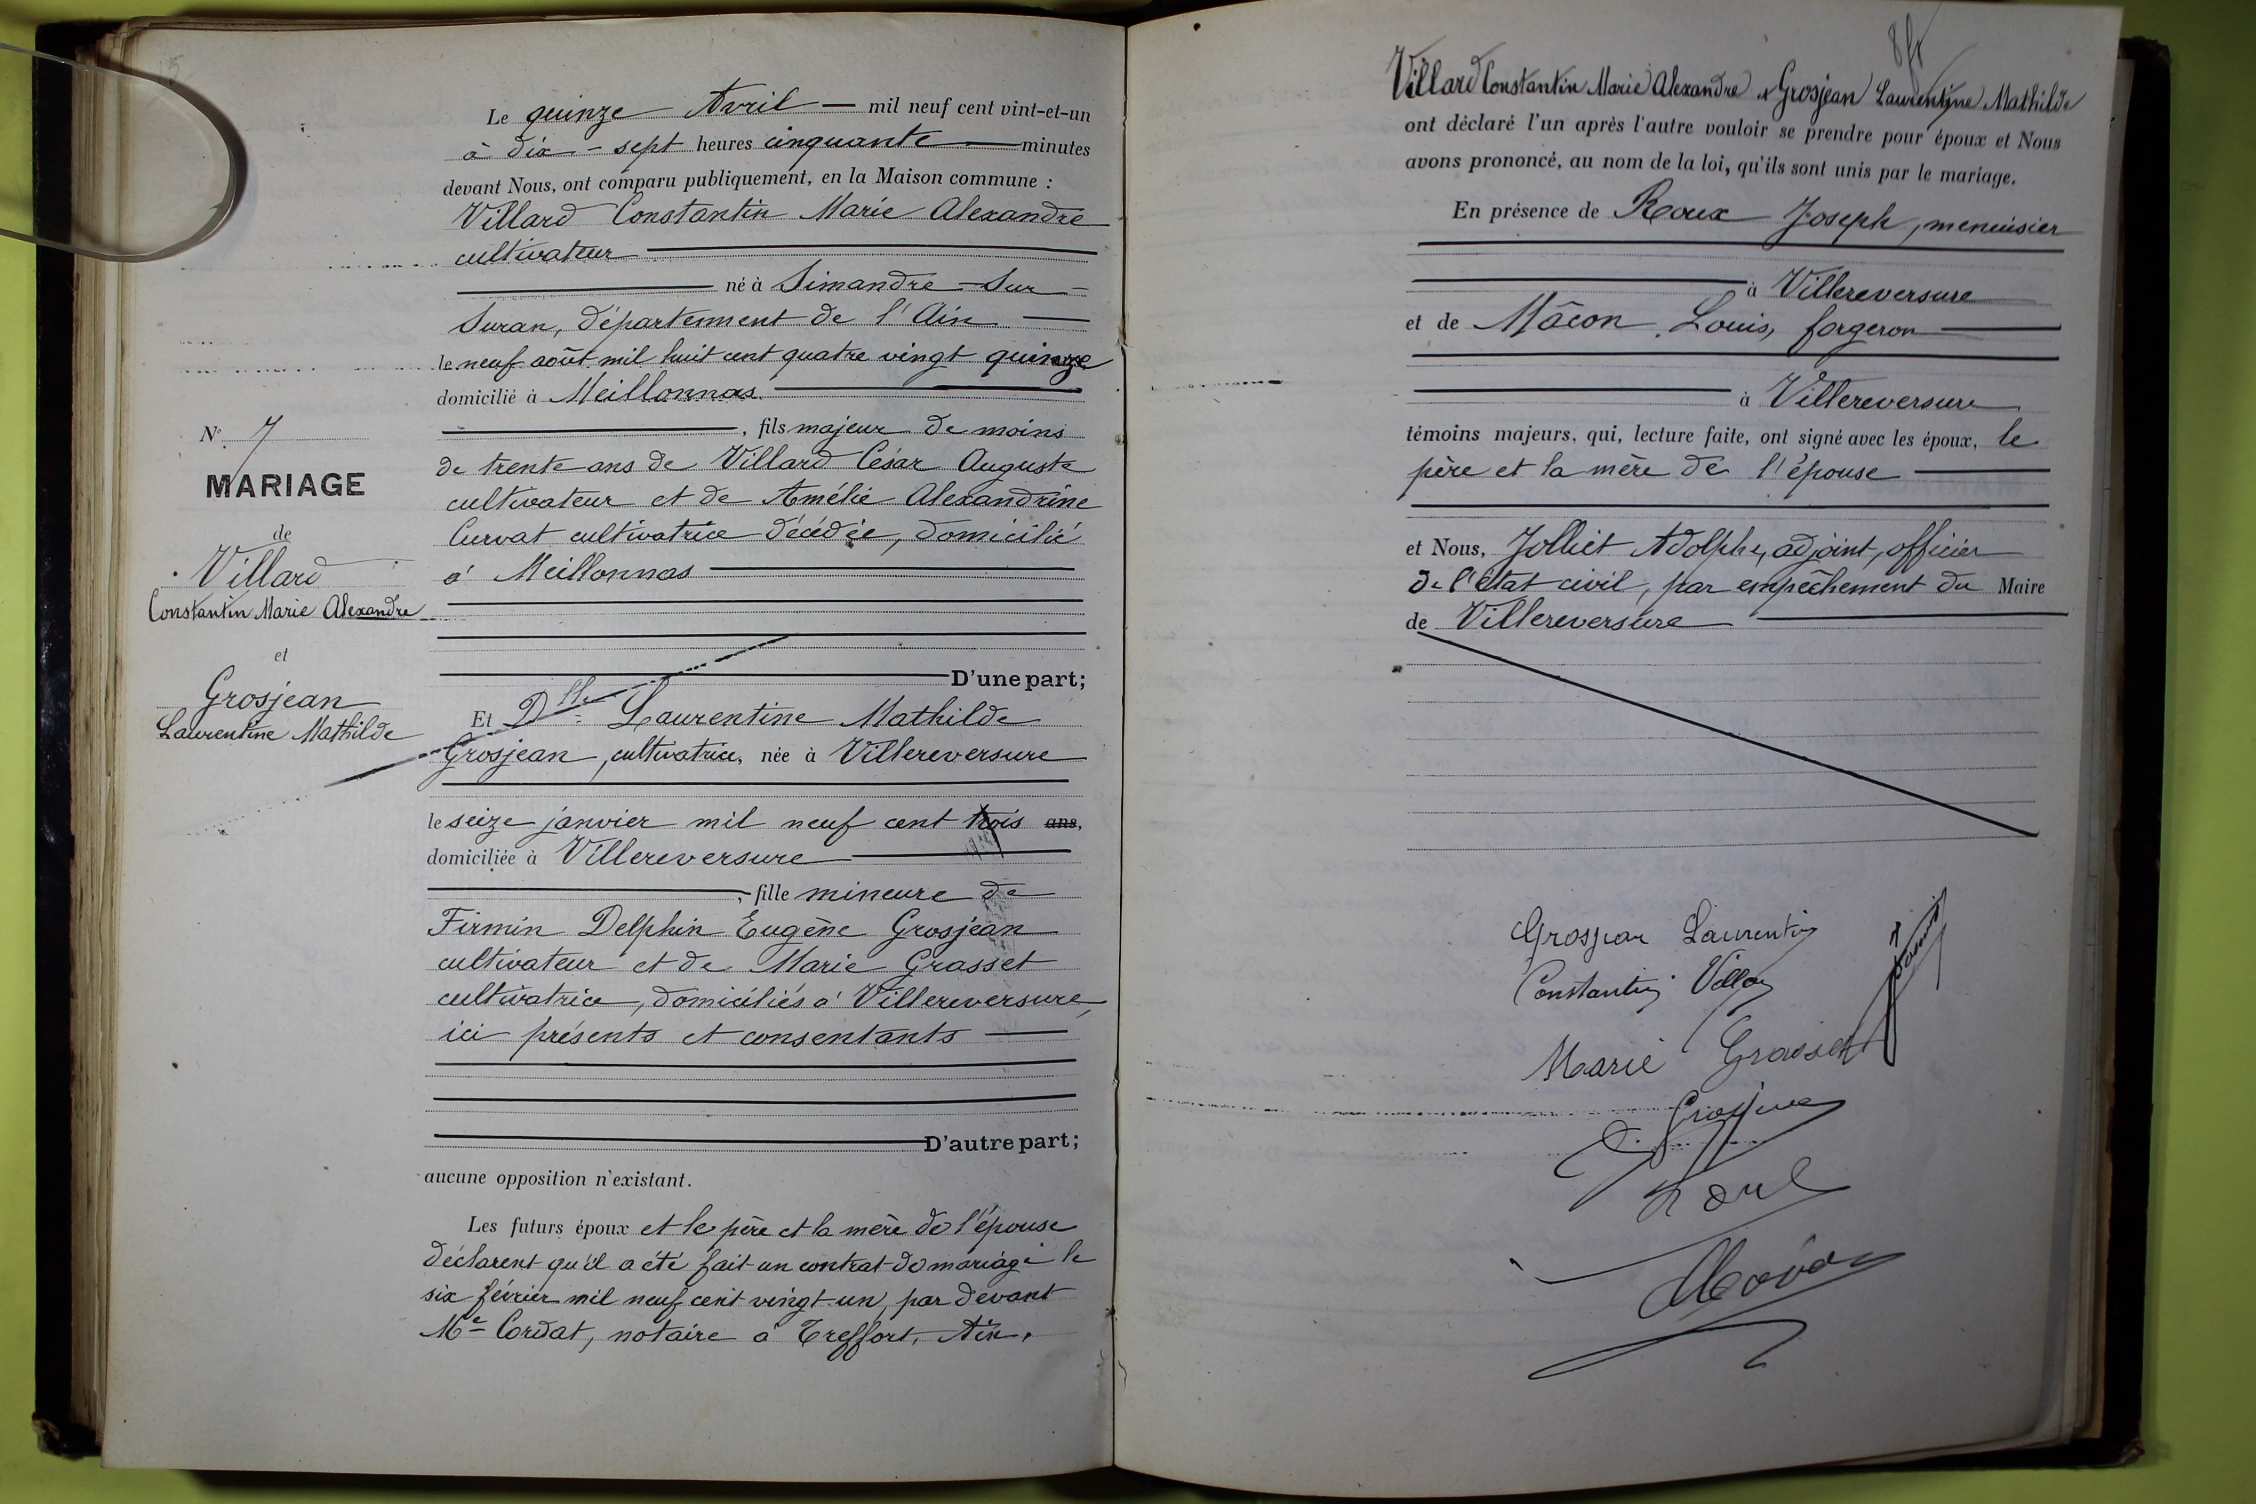 Le quinze Avril — mil neuf cent vint-et-un
à dix-sept heures cinquante minutes
devant Nous, ont comparu publiquement, en la Maison commune :
Villard Constantin Marie Alexandre
cultivateur
né à Simandre-Sur-
Suran, département de l'Ain
le neuf août mil huit cent quatre vingt quinze
domicilié à Meillonnas
, fils majeur de moins
de trente ans de Villard César Auguste
cultivateur et de Amélie Alexandrine
Curvat cultivatrice décédée, domicilié
à Meillonnas
D'une part;
Et Dlle Laurentine Mathilde
Grosjean, cultivatrice, née à Villereversure
le seize janvier mil neuf cent trois ans,
domiciliée à Villereversure
, fille mineure de
Firmin Delphin Eugène Grosjean
cultivateur et de Marie Grasset
cultivatrice, domiciliés à Villereversure,
ici présents et consentants
D'autre part;
aucune opposition n'existant.
Les futurs époux et le père et la mère de l'épouse
déclarent qu'il a été fait un contrat de mariage le
six février mil neuf cent vingt un, par devant
Me Cordat, notaire à Treffort, Ain.
N° 7
MARIAGE
de
Villard
Constantin Marie Alexandre
et
Grosjean
Laurentine Mathilde
Villard Constantin Marie Alexandre & Grosjean Laurentine Mathilde
ont déclaré l'un après l'autre vouloir se prendre pour époux et Nous
avons prononcé, au nom de la loi, qu'ils sont unis par le mariage.
En présence de Roux Joseph, menuisier
à Villereversure
et de Mâcon Louis, forgeron
à Villereversure
témoins majeurs, qui, lecture faite, ont signé avec les époux, le
père et la mère de l'épouse
et Nous, Jolliet Adolphe, adjoint, officier
de l'état civil, par empêchement du Maire
de Villereversure
Grosjean Laurentin
Constantin Villar
Marie Grasset